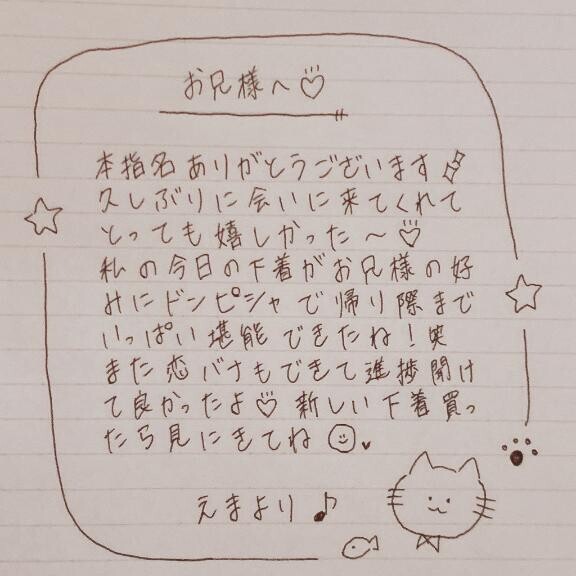 お兄様へ♡
本指名ありがとうございます
久しぶりに会いに来てくれて
とっても嬉しかった〜♡
私の今日の下着がお兄様の好
みにドンピシャで帰り際まで
いっぱい堪能できたね！笑
また恋バナもできて進捗聞け
て良かったよ♡新しい下着買っ
たら見にきてね
えまより♪